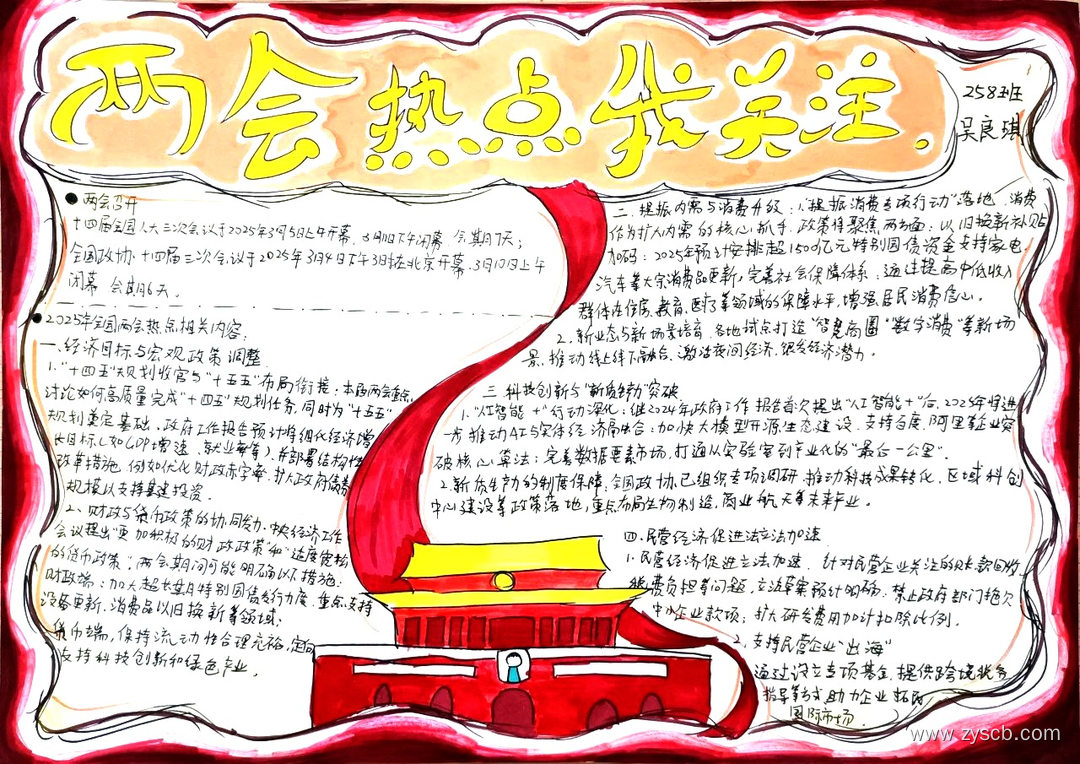 两会热点我关注
258班
吴良琪
●两会召开
十四届全国人大三次会议于2025年3月5日上午开幕，3月11日下午闭幕，会期7天；
全国政协十四届三次会议于2025年3月4日下午3时在北京开幕，3月10日上午
闭幕 会期6天。
●2025年全国两会热点相关内容：
一、经济目标与宏观政策调整
1."十四五"规划收官与"十五五"布局衔接：本届两会重点
讨论如何高质量完成"十四五"规划任务，同时为"十五五"
规划奠定基础，政府工作报告预计将细化经济增
长目标（如GDP增速、就业率等），并部署结构性
改革措施，例如优化财政赤字率、扩大政府债券
规模以支持基建投资。
2、财政与货币政策的协同发力：中央经济工作
会议提出"更加积极的财政政策"和"适度宽松
的货币政策"，两会期间可能明确以下措施：
财政端：加大超长期特别国债发行力度，重点支持
设备更新、消费品以旧换新等领域；
货币端，保持流动性合理充裕，定向
支持科技创新和绿色产业。
二、提振内需与消费升级：1."提振消费专项行动"落地，消费
作为扩大内需的核心抓手，政策将聚焦两方面：以旧换新补贴
加码：2025年预计安排超1500亿元特别国债资金支持家电、
汽车等大宗消费品更新，完善社会保障体系：通过提高中低收入
群体在住房、教育、医疗等领域的保障水平，增强居民消费信心。
2.新业态与新场景培育，各地试点打造"智慧商圈""数字消费"等新场
景，推动线上线下融合，激活夜间经济、银发经济潜力。
三、科技创新与"新质生产力"突破
1."人工智能+"行动深化：继2024年政府工作报告首次提出"人工智能+"后，2025年将进
一步推动AI与实体经济融合：加快大模型开源生态建设，支持百度、阿里等企业突
破核心算法；完善数据要素市场，打通从实验室到产业化的"最后一公里"。
2.新质生产力的制度保障：全国政协已组织专项调研，推动科技成果转化、区域科创
中心建设等政策落地，重点布局生物制造、商业航天等未来产业。
四、民营经济促进法立法加速
1.民营经济促进立法加速，针对民营企业关注的账款回收、
费负担等问题，立法草案预计明确：禁止政府部门拖欠
中小企业款项；扩大研发费用加计扣除比例。
2、支持民营企业"出海"
通过设立专项基金、提供跨境税务
指导等方式，助力企业拓展
国际市场.
www.zyscb.com